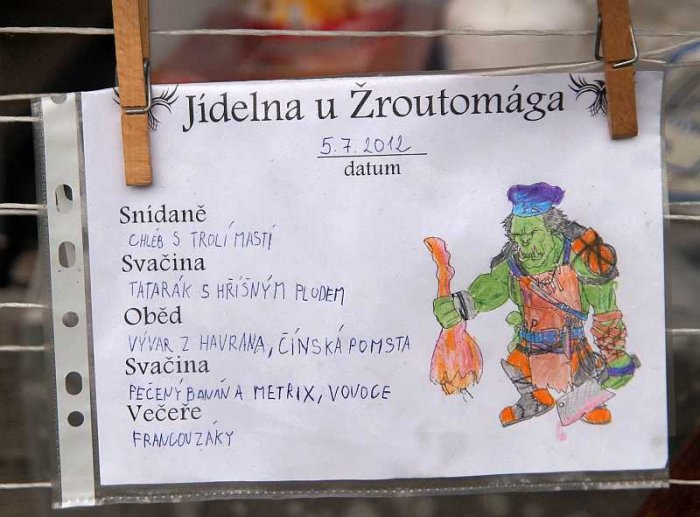 Jídelna u Žroutomága
5.7.2012
datum
Snídaně
CHLÉB S TROLÍ MASTÍ
Svačina
TATARÁK S HŘÍŠNÝM PLODEM
Oběd
VÝVAR Z HAVRANA, ČÍNSKÁ POMSTA
Svačina
PEČENÝ BANÁN A METRIX, VOVOCE
Večeře
FRANCOUZÁKY